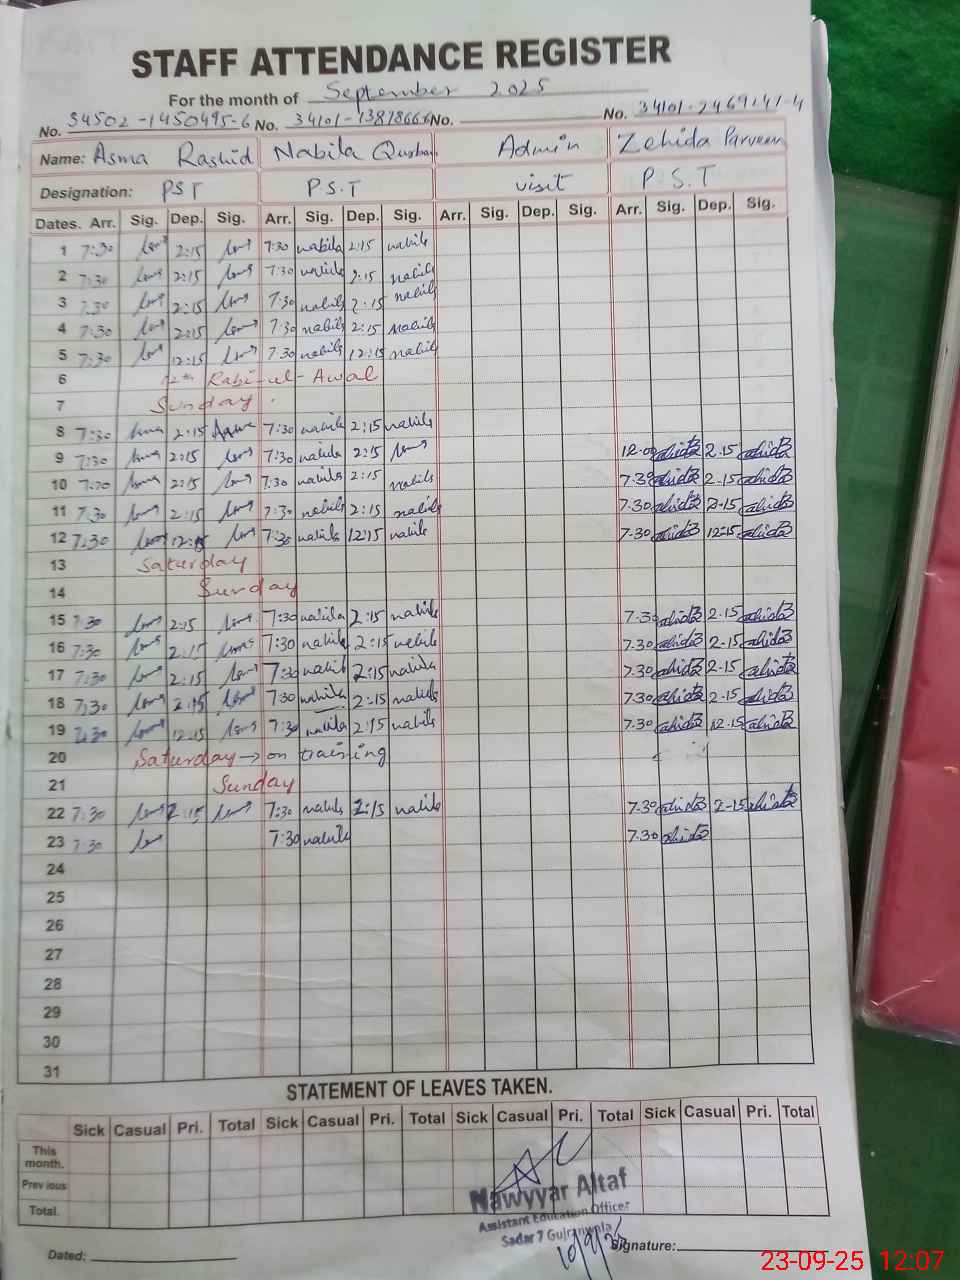 STAFF ATTENDANCE REGISTER
For the month of September 2025
No. 34502-1450495-6 No. 34101-1387866 No. No. 34101-2469141-4
Name: Asma Rashid Nabila Admin Zehida Parveen
Designation: PST P.S.T visit P.S.T
Dates. Arr. Sig. Dep. Sig. Arr. Sig. Dep. Sig. Arr. Sig. Dep. Sig. Arr. Sig. Dep. Sig.
1 7:30 2:15 7:30 nabila 2:15 nabila
2 7:30 2:15 7:30 nabila 2:15 nabila
3 7:30 2:15 7:30 nabila 2:15 nabila
4 7:30 2:15 7:30 nabila 2:15 nabila
5 7:30 12:15 7:30 nabila 12:15 nabila
6 12th Rabi-ul-Awal
7 Sunday
8 7:30 2:15 7:30 nabila 2:15 nabila
9 7:30 2:15 7:30 nabila 2:15 12.00 2.15
10 7:30 2:15 7:30 nabila 2:15 nabila 7.30 2-15
11 7:30 2:15 7:30 nabila 2:15 nabila 7.30 2-15
12 7:30 12:15 7:30 nabila 12:15 nabila 7.30 12-15
13 Saturday
14 Sunday
15 7:30 2:15 7:30 nabila 2:15 nabila 7.30 2.15
16 7:30 2:15 7:30 nabila 2:15 nabila 7.30 2-15
17 7:30 2:15 7:30 nabila 2:15 nabila 7.30 2-15
18 7:30 2:15 7:30 nabila 2:15 nabila 7.30 2-15
19 7:30 12:15 7:30 nabila 2:15 nabila 7.30 12.15
20 Saturday → on training
21 Sunday
22 7:30 2:15 7:30 nabila 2:15 nabila 7.30 2-15
23 7:30 7:30 nabila 7.30
24
25
26
27
28
29
30
31
STATEMENT OF LEAVES TAKEN.
Sick Casual Pri. Total Sick Casual Pri. Total Sick Casual Pri. Total Sick Casual Pri. Total
This month.
Previous
Total.
Nawyyar Altaf
Assistant Education Officer
Sadar 7 Gujranwala
Dated: Signature:
23-09-25 12:07